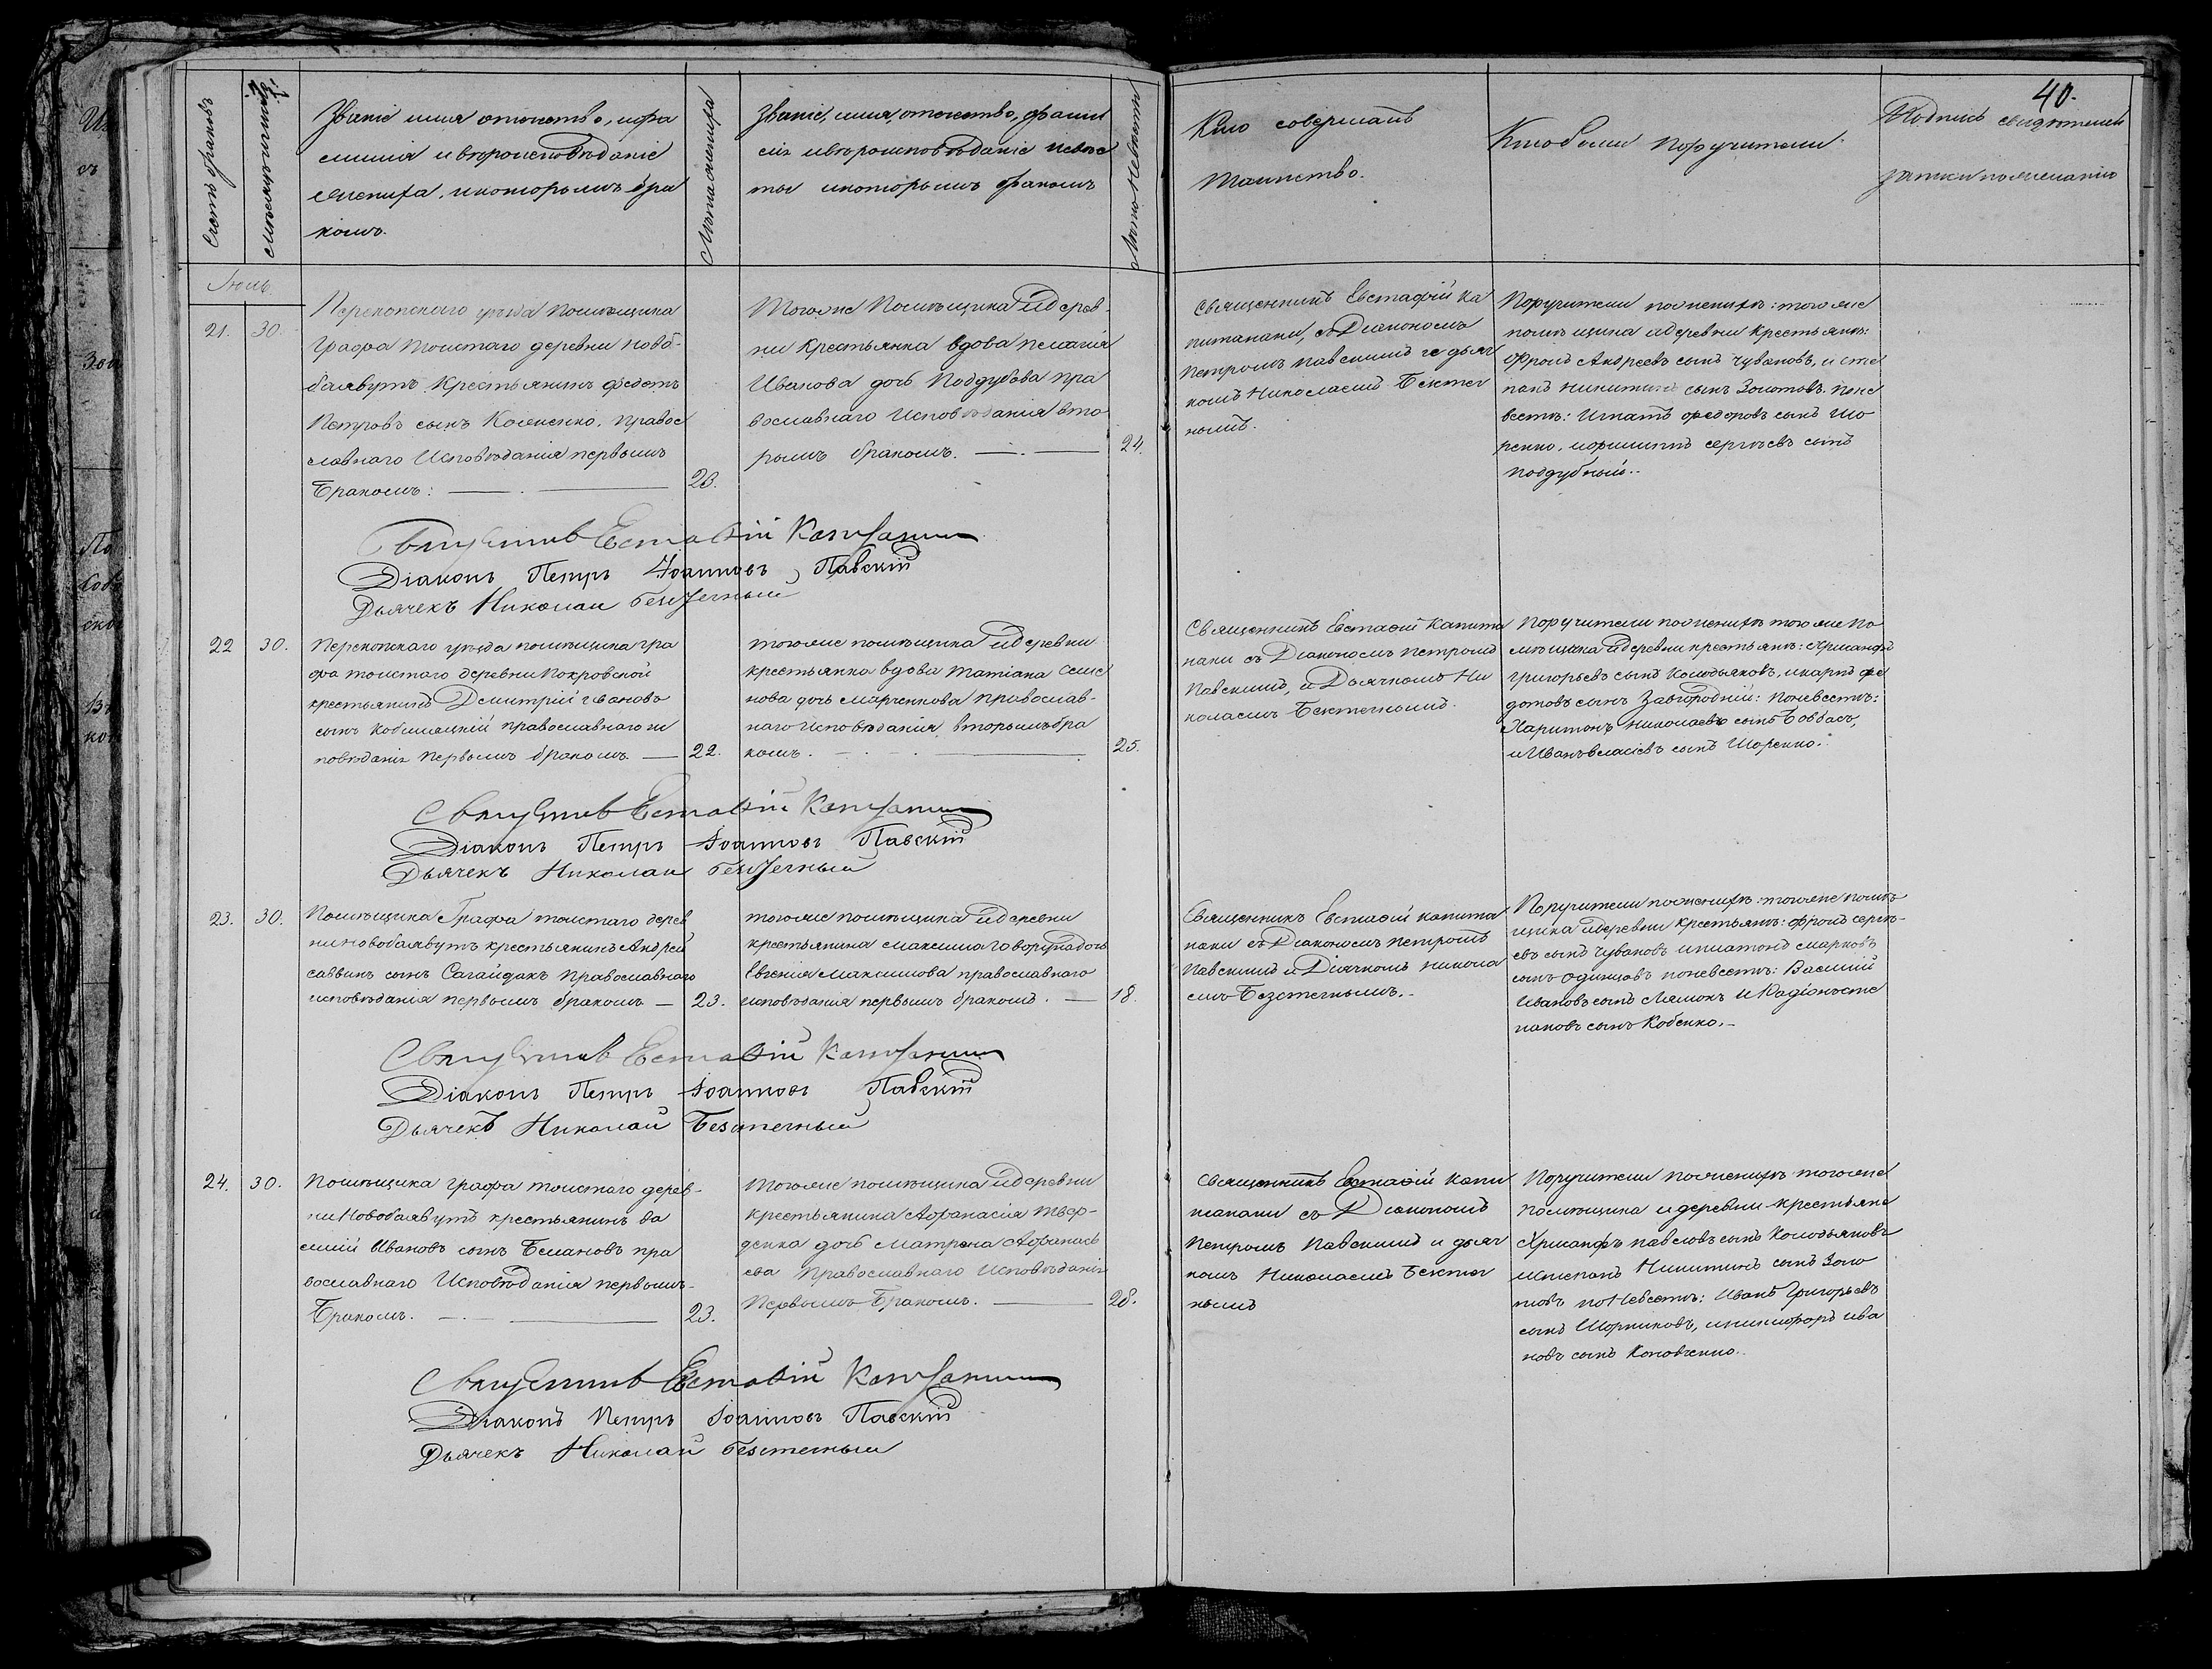 40.
Счетъ браковъ
Мѣсяцъ и число
Званіе имя отчество, ифа
милія и вѣроисповѣданіе
жениха, и которымъ бра
комъ.
Лѣта жениха
Званіе, имя, отчество, фами
лія и вѣроисповѣданіе невѣс
ты и которымъ бракомъ
Лѣта невѣсты
Кто совершалъ
Таинство.
Кто были поручители.
Подпись свидѣтелей
записи по желанію
Іюль
21. 30.
Перекопскаго уѣзда помѣщика
Графа Толстаго деревни Ново-
балабутъ крестьянинъ Федотъ
Петровъ сынъ Коженко. Правос
лавнаго Исповѣданія первымъ
Бракомъ:
23.
Тогоже Помѣщика Идерев-
ни Крестьянка вдова Пелагія
Иванова дочь Поддубова пра
вославнаго Исповѣданія вто
рымъ бракомъ.
24.
Священникъ Евстафій Ка
питанаки, съ Діакономъ
Петромъ Павскимъ и дьяч
комъ Николаемъ Безтеч
нымъ.
Поручители пожениху: тогоже
помѣщика идеревни Крестьяне:
Фролъ Андреевъ сынъ Чувановъ, и Сте
панъ Никитинъ сынъ Золотовъ. Поне
вестѣ: Игнатъ Федоровъ сынъ Шо
ренко, ифилиппъ Сергѣевъ сынъ
Поддубный.
Священникъ Евстафій Капитанаки
Діаконъ Петръ Іоанновъ Павскій
Дьячекъ Николай Безтечный
22 30.
Перекопскаго уѣзда помѣщика гра
фа толстаго деревни Покровской
крестьянинъ Димитрій Ивановъ
сынъ Кобыляцкій православнаго ис
повѣданія Первымъ бракомъ
22.
тогоже помѣщика Идеревни
крестьянка вдова Татіана Семе
нова дочь Марченкова Православ-
наго Исповѣданія вторымъ бра
комъ.
25.
Священникъ Евстафій Капита
наки съ Діакономъ Петромъ
Павскимъ, и Дьячкомъ Ни
колаемъ Безтечнымъ.
Поручители пожениху тогоже По
мѣщика Идеревни крестьяне: Хрисанфъ
Григорьевъ сынъ Колодьяковъ, икарпъ Фе
дотовъ сынъ Завгородній: Поневестѣ:
Харитонъ Николаевъ сынъ Боббасъ,
и Иванъ Власіевъ сынъ Шоренко.
Священникъ Евстафій Капитанаки
Діаконъ Петръ Іоанновъ Павскій
Дьячекъ Николай Безтечный
23. 30.
Помѣщика Графа толстаго дерев
ни новобалабутъ крестьянинъ Андрей
Саввинъ сынъ Сагайдакъ Православнаго
исповѣданія первымъ бракомъ
23.
тогоже помѣщика Идеревни
крестьянина Максима Говорухадочь
Евгенія Максимова православнаго
исповѣданія первымъ бракомъ.
18.
Священникъ Евстафій Капита
наки съ Діакономъ Петромъ
Павскимъ и Діячкомъ Никола
емъ Безстечнымъ.
Поручители пожениху: тогоже помѣ
щика Идеревни крестьяне: Фролъ Серге-
евъ сынъ Чувановъ иплатонъ Марковъ
сынъ Одинцовъ поневестѣ: Василій
Ивановъ сынъ Лямокъ И Родіонъ Сте
пановъ сынъ Кобенко.
Священникъ Евстафій Капитанаки
Діаконъ Петръ Іоанновъ Павскій
Дьячекъ Николай Безстечный
24. 30.
Помѣщика Графа толстаго дерев-
ни Новобалабутъ крестьянинъ Ва
силій Ивановъ сынъ Безмановъ пра
вославнаго Исповѣданія первымъ
Бракомъ.
23.
тогоже помѣщика Идеревни
крестьянина Афанасія Твер-
денка дочь Матрона Афанась
ева Православнаго Исповѣданія
Первымъ Бракомъ.
28.
Священникъ Евстафій Капи
танаки съ Діакономъ
Петромъ Павскимъ и дьяч
комъ Николаемъ Безтеч
нымъ
Поручители пожениху тогоже
помѣщика и деревни крестьяне
Хрисанфъ Павловъ сынъ Колодьяковъ
истепанъ Никитинъ сынъ Золо
товъ поневестѣ: Иванъ Григорьевъ
сынъ Шорниковъ, иникифоръ Ива
новъ сынъ Коновченко.
Священникъ Евстафій Капитанаки
Діаконъ Петръ Іоанновъ Павскій
Дьячекъ Николай Безстечный